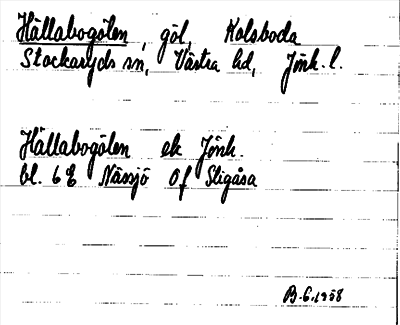 Hällabogölen, göl, Kolsboda
Stockaryds sn, Västra hd, Jönk. l.
Hällabogölen ek Jönk.
bl. 6 E Nässjö Of Sligåsa
B. G. 1958